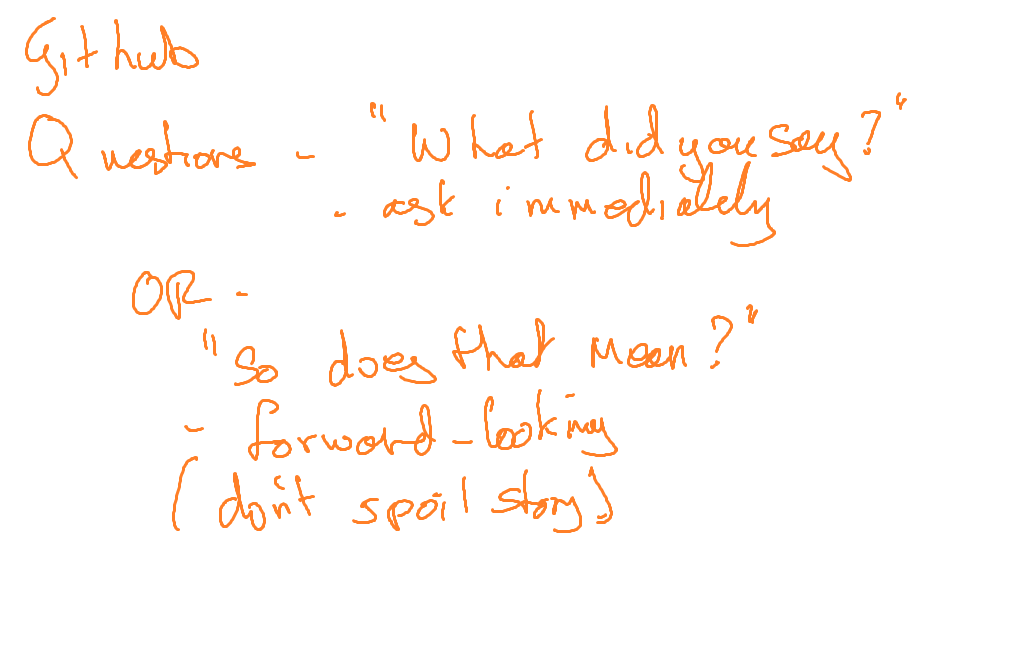 Github
Questions - "What did you say?"
- ask immediately
OR -
"So does that mean?"
- forward-looking
(don't spoil story)